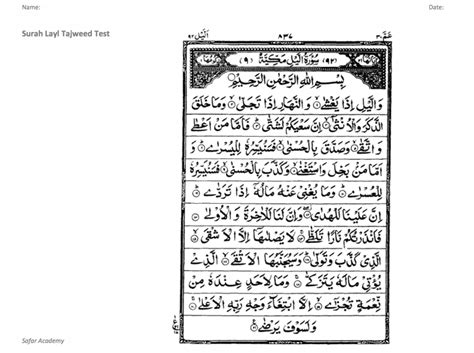 Name: Date:
Surah Layl Tajweed Test
عمّ ٣٠ ٨٣٧ اليل ٩٢
(٩٢) سُوْرَةُ الَّيْلِ مَكِّيَّةٌ (٩)
بِسْمِ اللهِ الرَّحْمٰنِ الرَّحِيْمِ
وَالَّيْلِ اِذَا يَغْشٰى ۙ وَالنَّهَارِ اِذَا تَجَلّٰى ۙ وَمَا خَلَقَ
الذَّكَرَ وَالْاُنْثٰٓى ۙ اِنَّ سَعْيَكُمْ لَشَتّٰى ؕ فَاَمَّا مَنْ اَعْطٰى
وَاتَّقٰى ۙ وَصَدَّقَ بِالْحُسْنٰى ۙ فَسَنُيَسِّرُهٗ لِلْيُسْرٰى ؕ وَ
اَمَّا مَنْۢ بَخِلَ وَاسْتَغْنٰى ۙ وَكَذَّبَ بِالْحُسْنٰى ۙ فَسَنُيَسِّرُهٗ
لِلْعُسْرٰى ؕ وَمَا يُغْنِيْ عَنْهُ مَالُهٗٓ اِذَا تَرَدّٰى ؕ
اِنَّ عَلَيْنَا لَلْهُدٰى ۖ وَاِنَّ لَنَا لَلْاٰخِرَةَ وَالْاُوْلٰى
فَاَنْذَرْتُكُمْ نَارًا تَلَظّٰى ۚ لَا يَصْلٰىهَآ اِلَّا الْاَشْقَى
الَّذِيْ كَذَّبَ وَتَوَلّٰى ؕ وَسَيُجَنَّبُهَا الْاَتْقَى ۙ الَّذِيْ
يُؤْتِيْ مَالَهٗ يَتَزَكّٰى ۚ وَمَا لِاَحَدٍ عِنْدَهٗ مِنْ
نِّعْمَةٍ تُجْزٰٓى ۙ اِلَّا ابْتِغَآءَ وَجْهِ رَبِّهِ الْاَعْلٰى ۚ
وَلَسَوْفَ يَرْضٰى
Safar Academy